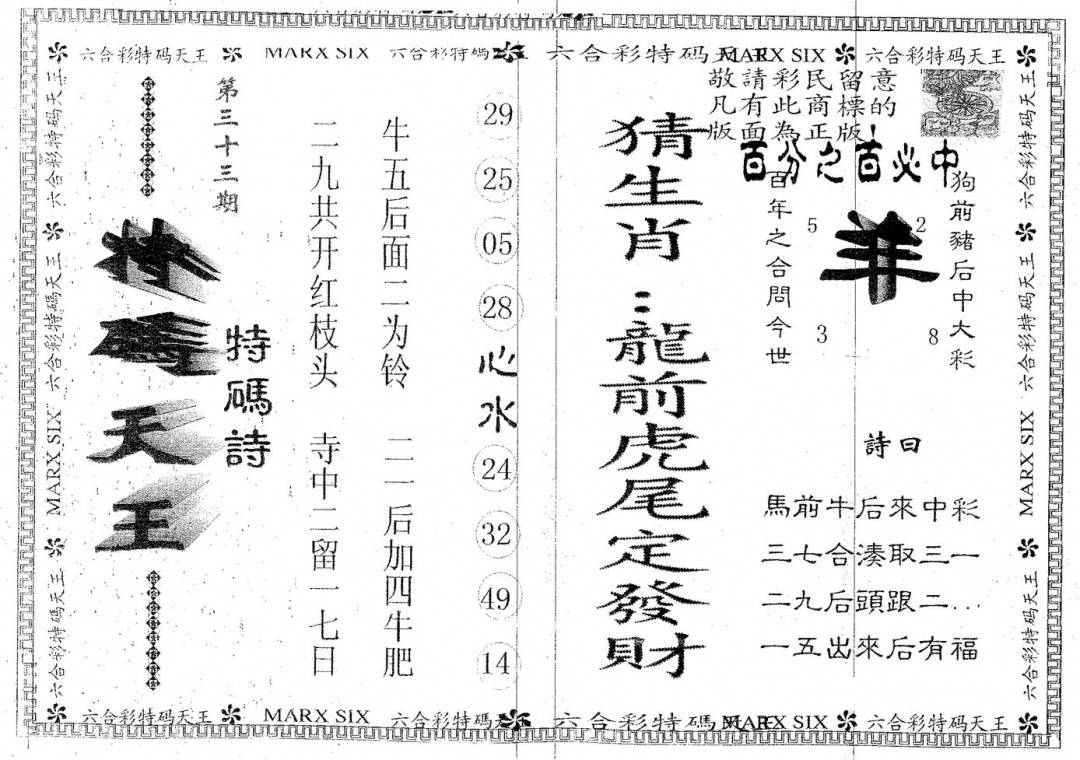 六合彩特码天王 MARX SIX 六合彩特碼天王 六合彩特码天王 MARX SIX 六合彩特码天王
敬請彩民留意
凡有此商標的
版面為正版!
百分之百必中
狗前豬后中大彩
羊
5 2
3 8
百年之合問今世
詩曰
馬前牛后來中彩
三七合湊取三一
二九后頭跟二...
一五出來后有福
猜生肖:龍前虎尾定發財
29
25
05
28
心水
24
32
49
14
牛五后面二为铃 二一后加四牛肥
二九共开红枝头 寺中二留一七日
特碼詩
第三十三期
特碼天王
六合彩特码天王 六合彩特碼天王 MARX SIX 六合彩特码天王
六合彩特码天王 六合彩特碼天王 MARX SIX 六合彩特码天王
六合彩特码天王 MARX SIX 六合彩特碼天王 六合彩特码 MARX SIX 六合彩特码天王